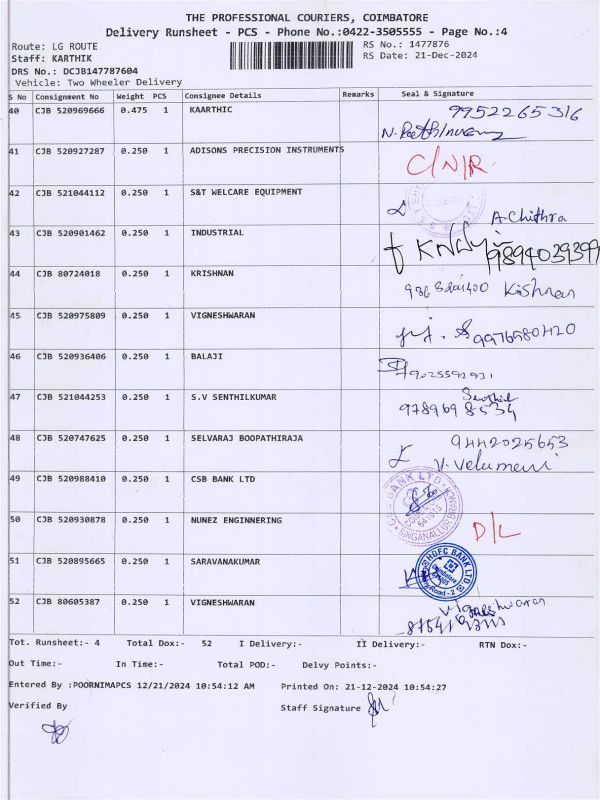 THE PROFESSIONAL COURIERS, COIMBATORE
Delivery Runsheet - PCS - Phone No.:0422-3505555 - Page No.:4
Route: LG ROUTE RS No.: 1477876
Staff: KARTHIK RS Date: 21-Dec-2024
DRS No.: DCJB147787604
Vehicle: Two Wheeler Delivery
S No Consignment No Weight PCS Consignee Details Remarks Seal & Signature
40 CJB 520969666 0.475 1 KAARTHIC 9952265316
41 CJB 520927287 0.250 1 ADISONS PRECISION INSTRUMENTS C/N/R
42 CJB 521044112 0.250 1 S&T WELCARE EQUIPMENT A.Chithra
43 CJB 520901462 0.250 1 INDUSTRIAL 9894039399
44 CJB 80724018 0.250 1 KRISHNAN Krishnan
45 CJB 520975809 0.250 1 VIGNESHWARAN 9976580420
46 CJB 520936406 0.250 1 BALAJI
47 CJB 521044253 0.250 1 S.V SENTHILKUMAR Senthil
9789698534
48 CJB 520747625 0.250 1 SELVARAJ BOOPATHIRAJA 9442025653
V. Velumani
49 CJB 520988410 0.250 1 CSB BANK LTD
BANK LTD. SINGANALLUR BRANCH
50 CJB 520930878 0.250 1 NUNEZ ENGINNERING D/L
51 CJB 520895665 0.250 1 SARAVANAKUMAR
HDFC BANK LTD. Coimbatore
52 CJB 80605387 0.250 1 VIGNESHWARAN Vigneshwaran
Tot. Runsheet:- 4 Total Dox:- 52 I Delivery:- II Delivery:- RTN Dox:-
Out Time:- In Time:- Total POD:- Delvy Points:-
Entered By :POORNIMAPCS 12/21/2024 10:54:12 AM Printed On: 21-12-2024 10:54:27
Verified By Staff Signature